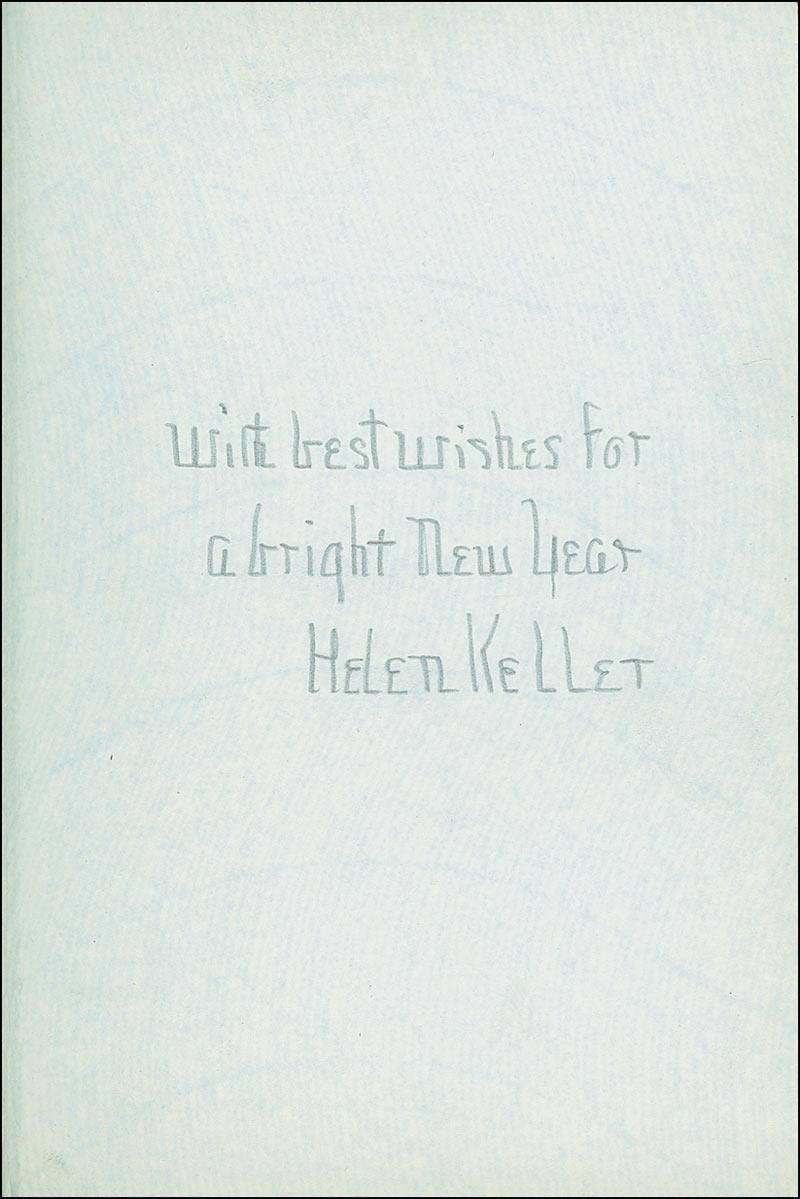 With best wishes for
a bright New Year
Helen Keller